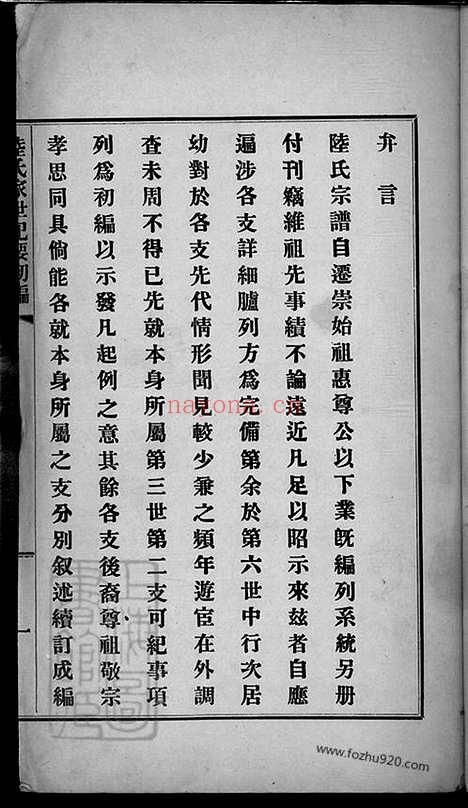 弁言
陸氏宗譜自遷崇始祖惠尊公以下業既編列系統另册
付刊竊維祖先事績不論遠近凡足以昭示來玆者自應
遍涉各支詳細臚列方為完備第余於第六世中行次居
幼對於各支先代情形聞見較少兼之頻年遊宦在外調
查未周不得已先就本身所屬第三世第二支可紀事項
列為初編以示發凡起例之意其餘各支後裔尊祖敬宗
孝思同具倘能各就本身所屬之支分別叙述續訂成編
陸氏家世紀要初編
一
nayona.cn
www.fozhu920.com